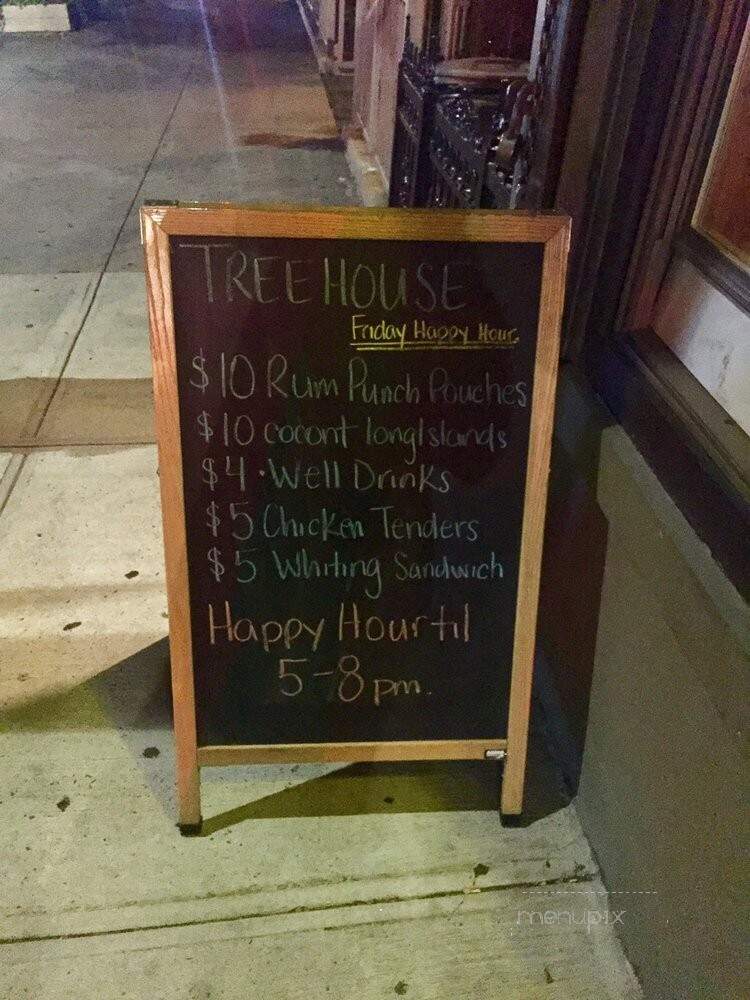 TREEHOUSE
Friday Happy Hour
$10 Rum Punch Pouches
$10 cocont longIslands
$4 · Well Drinks
$5 Chicken Tenders
$5 Whiting Sandwich
Happy Hour til
5-8pm.
menupix